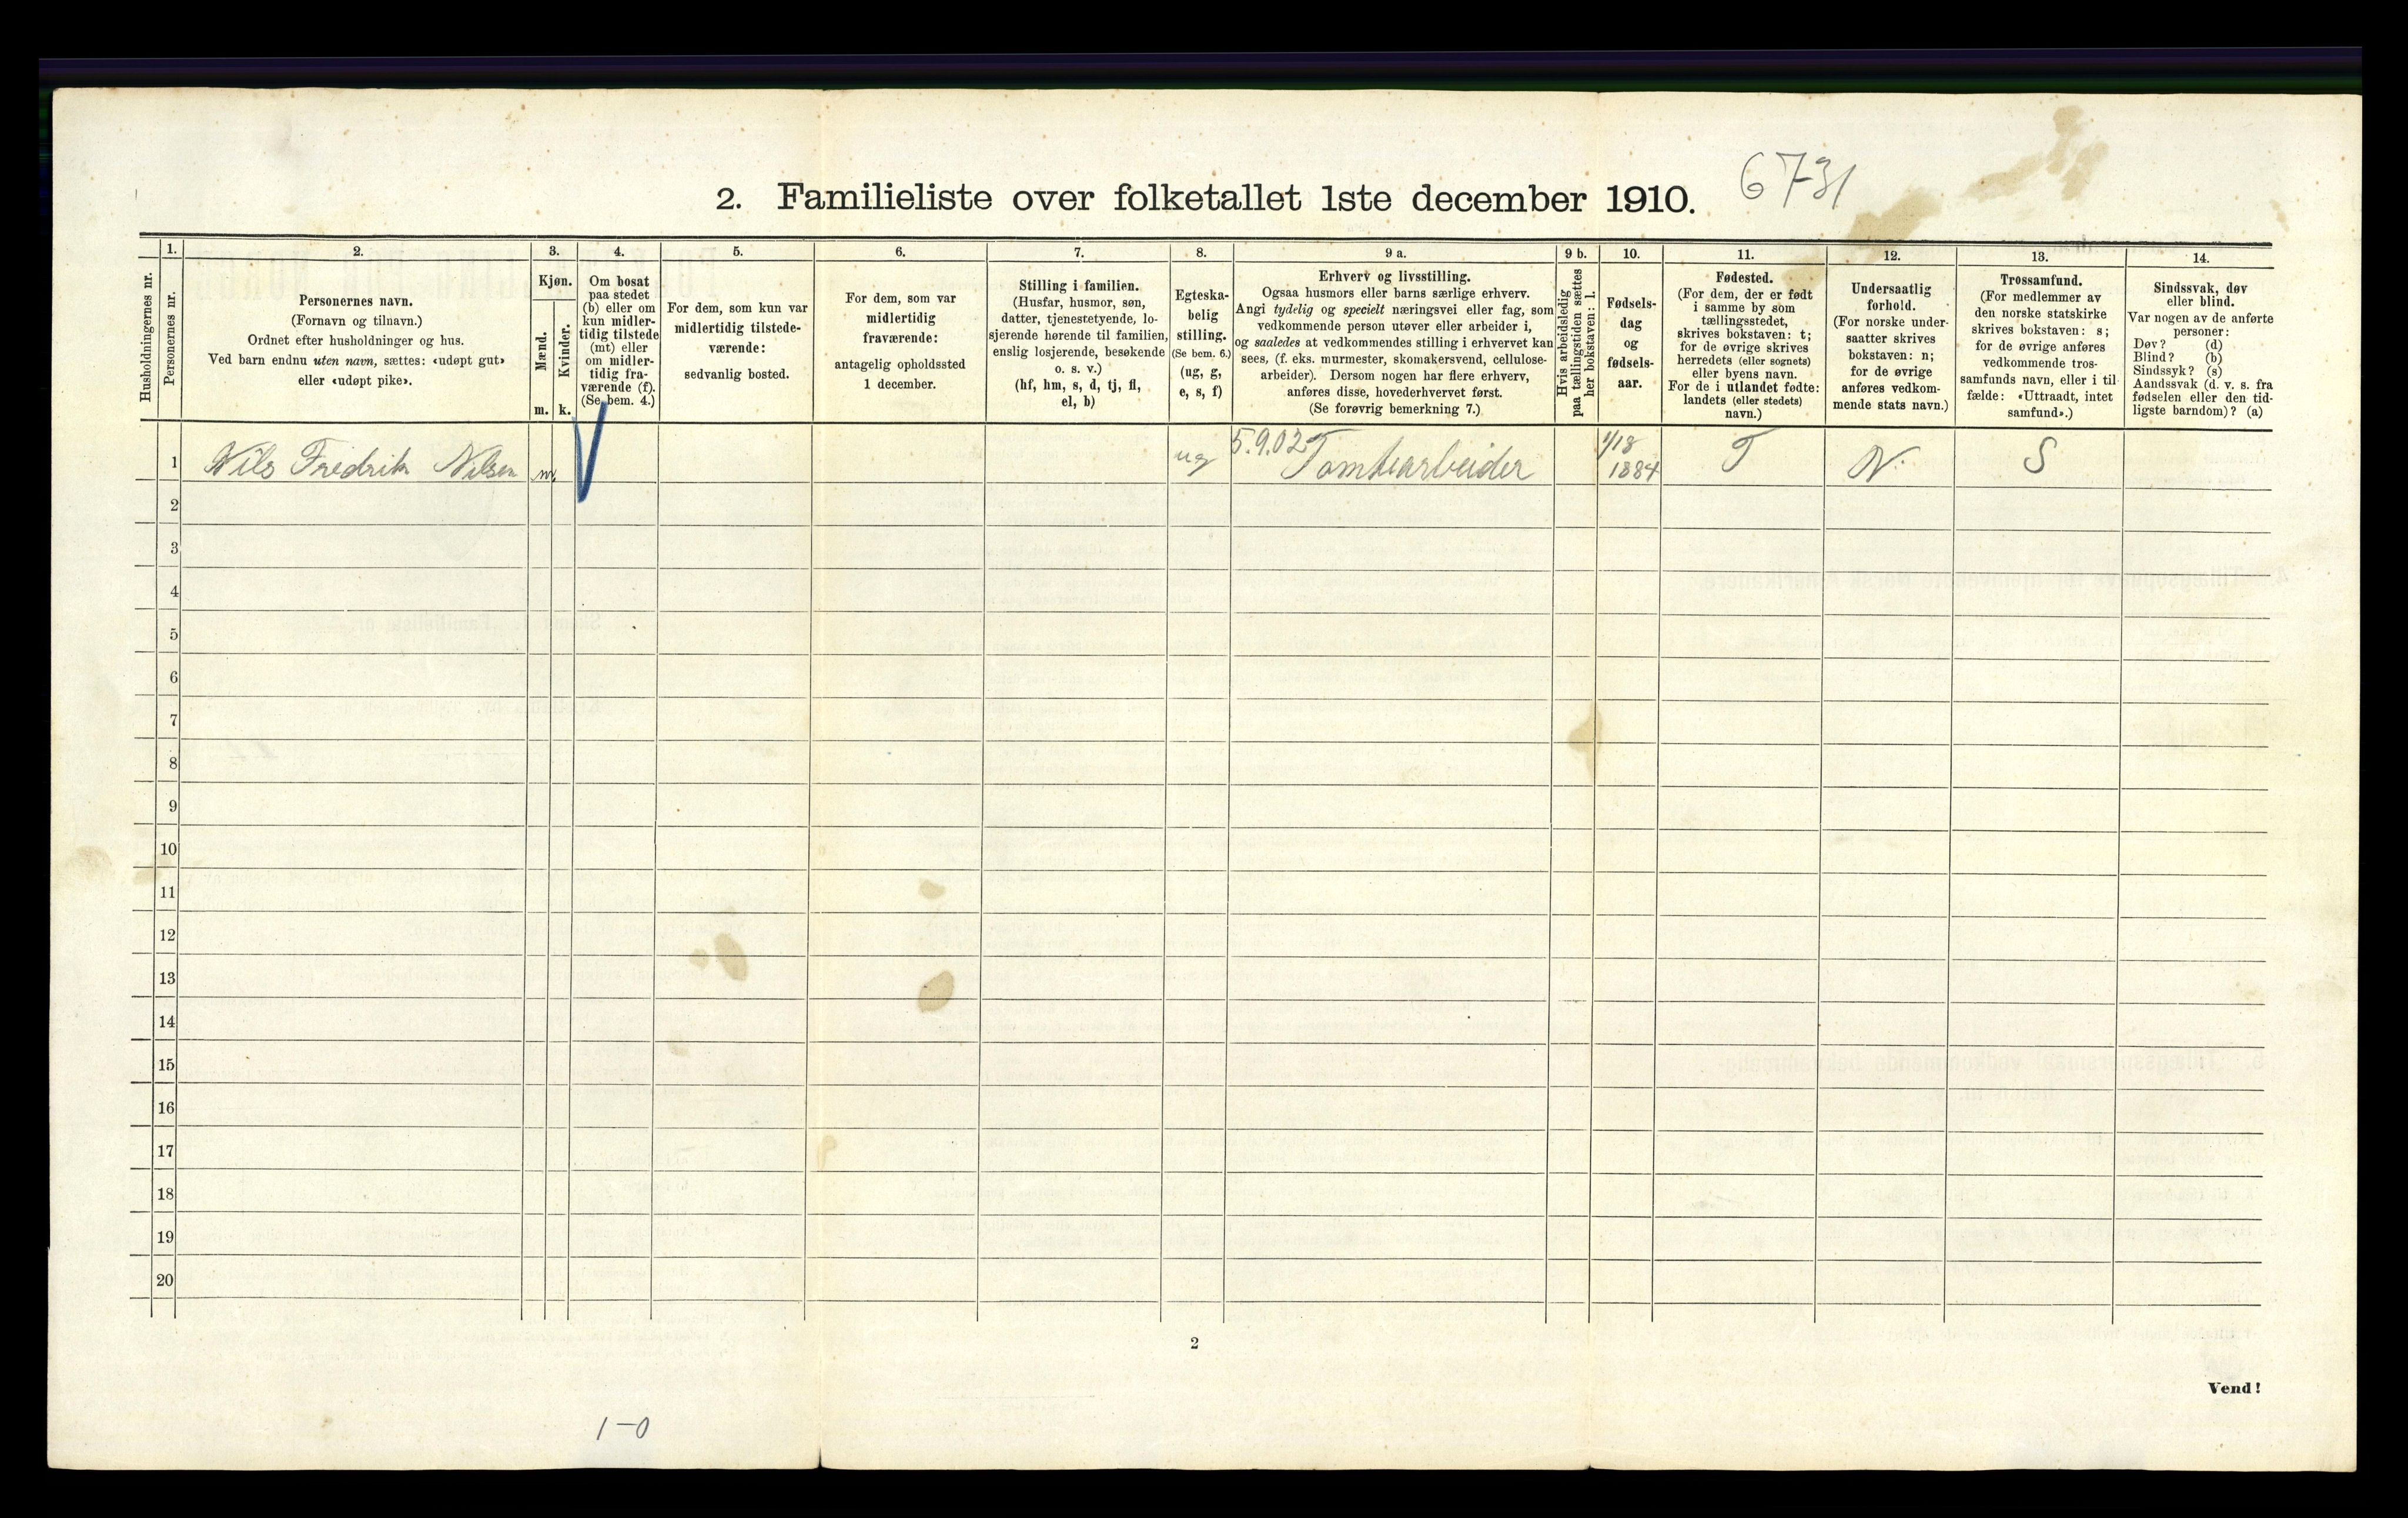 6731
2. Familieliste over folketallet 1ste december 1910.
Husholdningernes nr.
1.
Personernes nr.
2.
Personernes navn.
(Fornavn og tilnavn.)
Ordnet efter husholdninger og hus.
Ved barn endnu uten navn, sættes: «udøpt gut»
eller «udøpt pike».
3.
Kjøn.
Mænd.
Kvinder.
m. k.
4.
Om bosat
paa stedet
(b) eller om
kun midler-
tidig tilstede
(mt) eller
om midler-
tidig fra-
værende (f).
(Se bem. 4.)
5.
For dem, som kun var
midlertidig tilstede-
værende:
sedvanlig bosted.
6.
For dem, som var
midlertidig
fraværende:
antagelig opholdssted
1 december.
7.
Stilling i familien.
(Husfar, husmor, søn,
datter, tjenestetyende, lo-
sjerende hørende til familien,
enslig losjerende, besøkende
o. s. v.)
(hf, hm, s, d, tj, fl,
el, b)
8.
Egteska-
belig
stilling.
(Se bem. 6.)
(ug, g,
e, s, f)
9 a.
Erhverv og livsstilling.
Ogsaa husmors eller barns særlige erhverv.
Angi tydelig og specielt næringsvei eller fag, som
vedkommende person utøver eller arbeider i,
og saaledes at vedkommendes stilling i erhvervet kan
sees, (f. eks. murmester, skomakersvend, cellulose-
arbeider). Dersom nogen har flere erhverv,
anføres disse, hovederhvervet først.
(Se forøvrig bemerkning 7.)
9 b.
Hvis arbeidsledig
paa tællingstiden sættes
her bokstaven: l.
10.
Fødsels-
dag
og
fødsels-
aar.
11.
Fødested.
(For dem, der er født
i samme by som
tællingsstedet,
skrives bokstaven: t;
for de øvrige skrives
herredets (eller sognets)
eller byens navn.
For de i utlandet fødte:
landets (eller stedets)
navn.)
12.
Undersaatlig
forhold.
(For norske under-
saatter skrives
bokstaven: n;
for de øvrige
anføres vedkom-
mende stats navn.)
13.
Trossamfund.
(For medlemmer av
den norske statskirke
skrives bokstaven: s;
for de øvrige anføres
vedkommende tros-
samfunds navn, eller i til-
fælde: «Uttraadt, intet
samfund».)
14.
Sindssvak, døv
eller blind.
Var nogen av de anførte
personer:
Døv? (d)
Blind? (b)
Sindssyk? (s)
Aandssvak (d. v. s. fra
fødselen eller den tid-
ligste barndom)? (a)
1 Nils Fredrik Nilsen m. ug 5.9.02 Tomtearbeider 1/18 1884 T N. S
2
3
4
5
6
7
8
9
10
11
12
13
14
15
16
17
18
19
20
2
Vend!
1-0